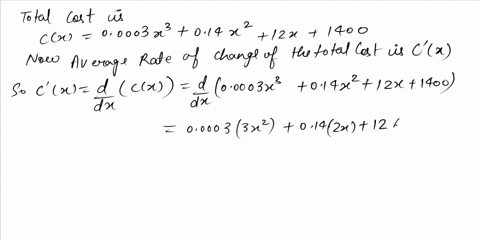 Total Cost is
C(x) = 0.0003x³ + 0.14x² + 12x + 1400
Now Average Rate of change of the total Cost is C'(x)
So C'(x) = d/dx (C(x)) = d/dx (0.0003x³ + 0.14x² + 12x + 1400)
= 0.0003(3x²) + 0.14(2x) + 12(